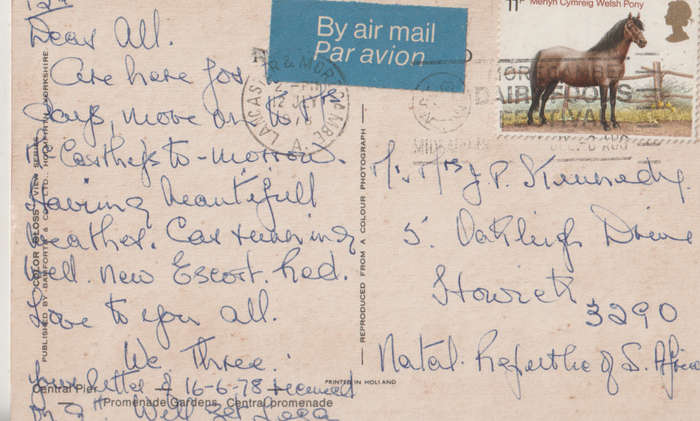 Dear All.
Are here for
days, move on to Mr
Castheys to-morrow.
Having beautifull
weather. Car running
well. new Escort. Red.
Love to you all.
We Three.
your letter of 16-6-78 received
Will
Central Pier
Promenade Gardens, Central promenade
COLOR GLOSS VIEW SERIES
PUBLISHED BY BAMFORTH & CO., LTD., HOLMFIRTH, YORKSHIRE
REPRODUCED FROM A COLOUR PHOTOGRAPH
PRINTED IN HOLLAND
By air mail
Par avion
LANCASTER & MORECAMBE
A
11P Merlyn Cymreig Welsh Pony
MORECAMBE
M/s. Mrs J. P. Kennedy
5. Oakleigh Drive
Howick
3290
Natal. Republic of S. Africa